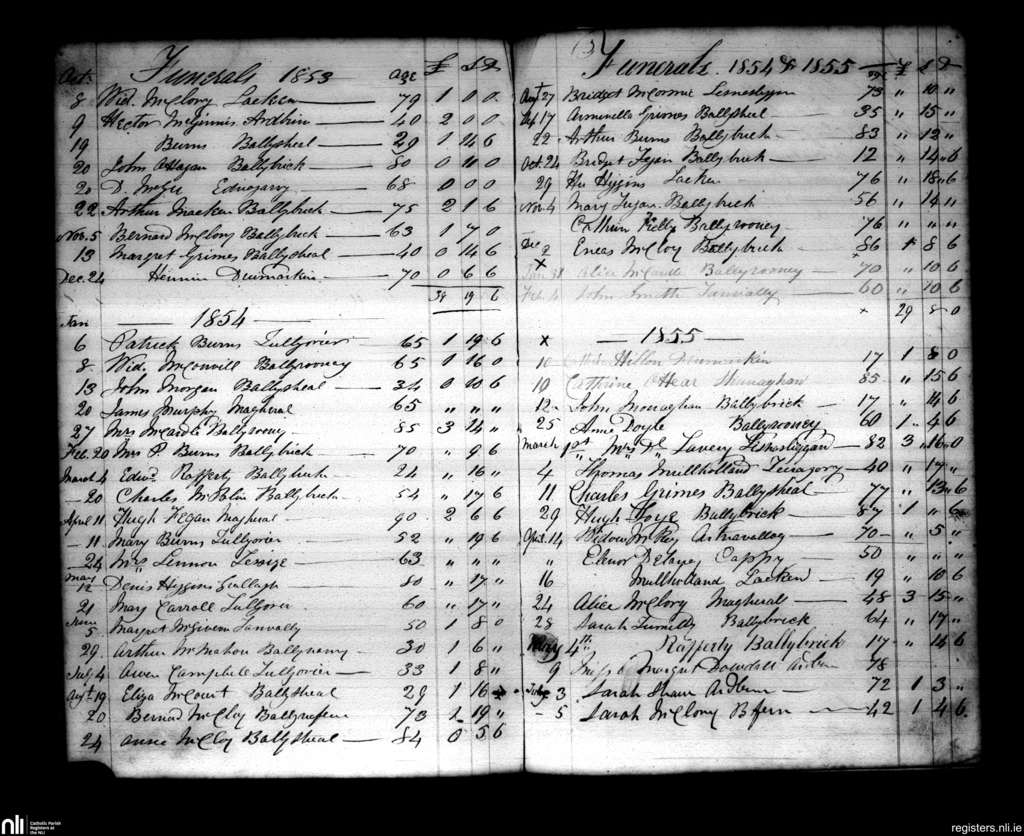 Funerals 1853 age £ S D
Oct. 8 Wid. McClory Lacken 79 1 0 0
9 Hector McGinnis Ardbrin 40 2 0 0
19 Burns Ballysheal 29 1 14 6
20 John OHagan Ballybrick 80 0 10 0
20 D. McGee Ednagarry 68 0 0 0
22 Arthur Macken Ballybrick 75 2 1 6
Nov. 5 Bernard McClory Ballybrick 63 1 7 0
13 Margret Grimes Ballysheal 40 0 14 6
Dec. 24 Drumarkin 70 0 6 6
38 19 6
1854
Jan
6 Patrick Burns Tullyorier 65 1 19 6
8 Wid. McConvill Ballyrooney 65 1 16 0
13 John Morgan Ballysheal 34 0 10 6
20 James Murphy Magheral 65 " " "
27 Mrs McCardle Ballyrooney 85 3 14 "
Feb. 20 Mrs P Burns Ballybrick 70 " 9 6
March 4 Edwd Rafferty Ballybrick 24 " 16 "
20 Charles McPolin Ballybrick 54 " 17 6
April 11 Hugh Fegan Magheral 90 2 6 6
11 Mary Burns Tullyorier 52 " 19 6
24 Mrs Lennon 63 " " "
May 12 Denis Higgins 80 " 17 "
21 Mary Carroll Tullyorier 60 " 17 "
June 5 Margret McGivern Tanvally 50 1 8 0
29 Arthur McMahon Ballyroney 30 1 6 "
July 4 Owen Campbell Tullyorier 33 1 8 "
Augt. 19 Eliza McCourt Ballysheal 29 1 16
20 Bernard McCloy 73 1 19 "
24 Anne McCloy Ballysheal 84 0 5 6
Funerals 1854 & 1855 age £ S D
Augt 27 Bridget McComic 73 " 10 "
17 Armenella Grimes Ballysheal 35 " 15 "
22 Arthur Burns Ballybrick 83 " 12 "
Oct. 24 Bridget Fegan Ballybrick 12 " 14 6
29 Hu Higgins Lacken 76 " 18 6
Nov. 4 Mary Fegan Ballybrick 56 " 14 "
Cathrin Kelly Ballyrooney 76 " " "
Dec 2 Eneas McCloy Ballybrick 86 + 8 6
x Alice McCardle Ballyrooney 70 " 10 6
Feb. John Smith Tanvally 60 " 10 6
x 29 8 0
x 1855
10 Hillon Drumarkin 17 1 8 0
10 Cathrine OHear Shinaghan 85 " 15 6
12 John Monaghan Ballybrick 17 " 14 6
25 Anne Doyle Ballyrooney 60 1 4 6
March 1st Mrs Lavery Liskasliggan 82 3 16 0
4 Thomas Mullholland 40 " 17 "
11 Charles Grimes Ballysheal 77 " 13 6
29 Hugh Ballybrick 87 1 " 6
April. 14 Widow McKey Astnavallog 70 " 5 "
" Elenor Delaney Cappy 50 " " "
16 Mullholland Lacken 19 " 10 6
24 Alice McClory Magherall 48 3 15 "
28 Sarah Turnelly Ballybrick 64 " 17 "
May 4th Rafferty Ballybrick 17 " 14 6
9 Margret Dowdall Ardbrin 78
July 3 Sarah Shaw Ardbrin 72 1 3 "
5 Sarah McClory 42 1 4 6
nli Catholic Parish Registers at the NLI
registers.nli.ie